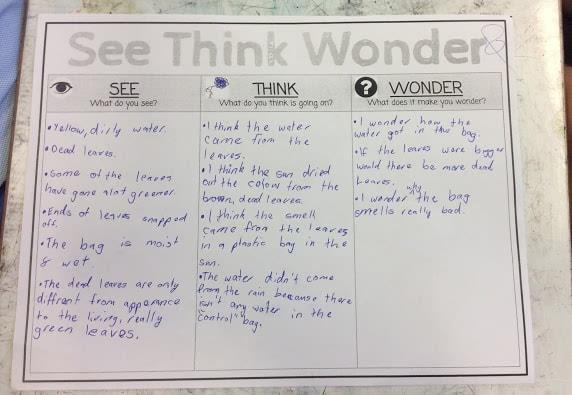 See Think Wonder
8
SEE
What do you see?
• Yellow, dirty water.
• Dead leaves.
• Some of the leaves
have gone alot greener.
• Ends of leaves snapped
off.
• The bag is moist
& wet.
• The dead leaves are only
diffrent from apperance
to the living, really
green leaves.
THINK
What do you think is going on?
• I think the water
came from the
leaves.
• I think the sun dried
out the colour from the
brown, dead leaves.
• I think the smell
came from the leaves
in a plastic bag in the
sun.
• The water didn't come
from the rain because there
isn't any water in the
"control" bag.
WONDER
What does it make you wonder?
• I wonder how the
water got in the bag.
• If the leaves were bigger
would there be more dead
leaves.
• I wonder why the bag
smells really bad.